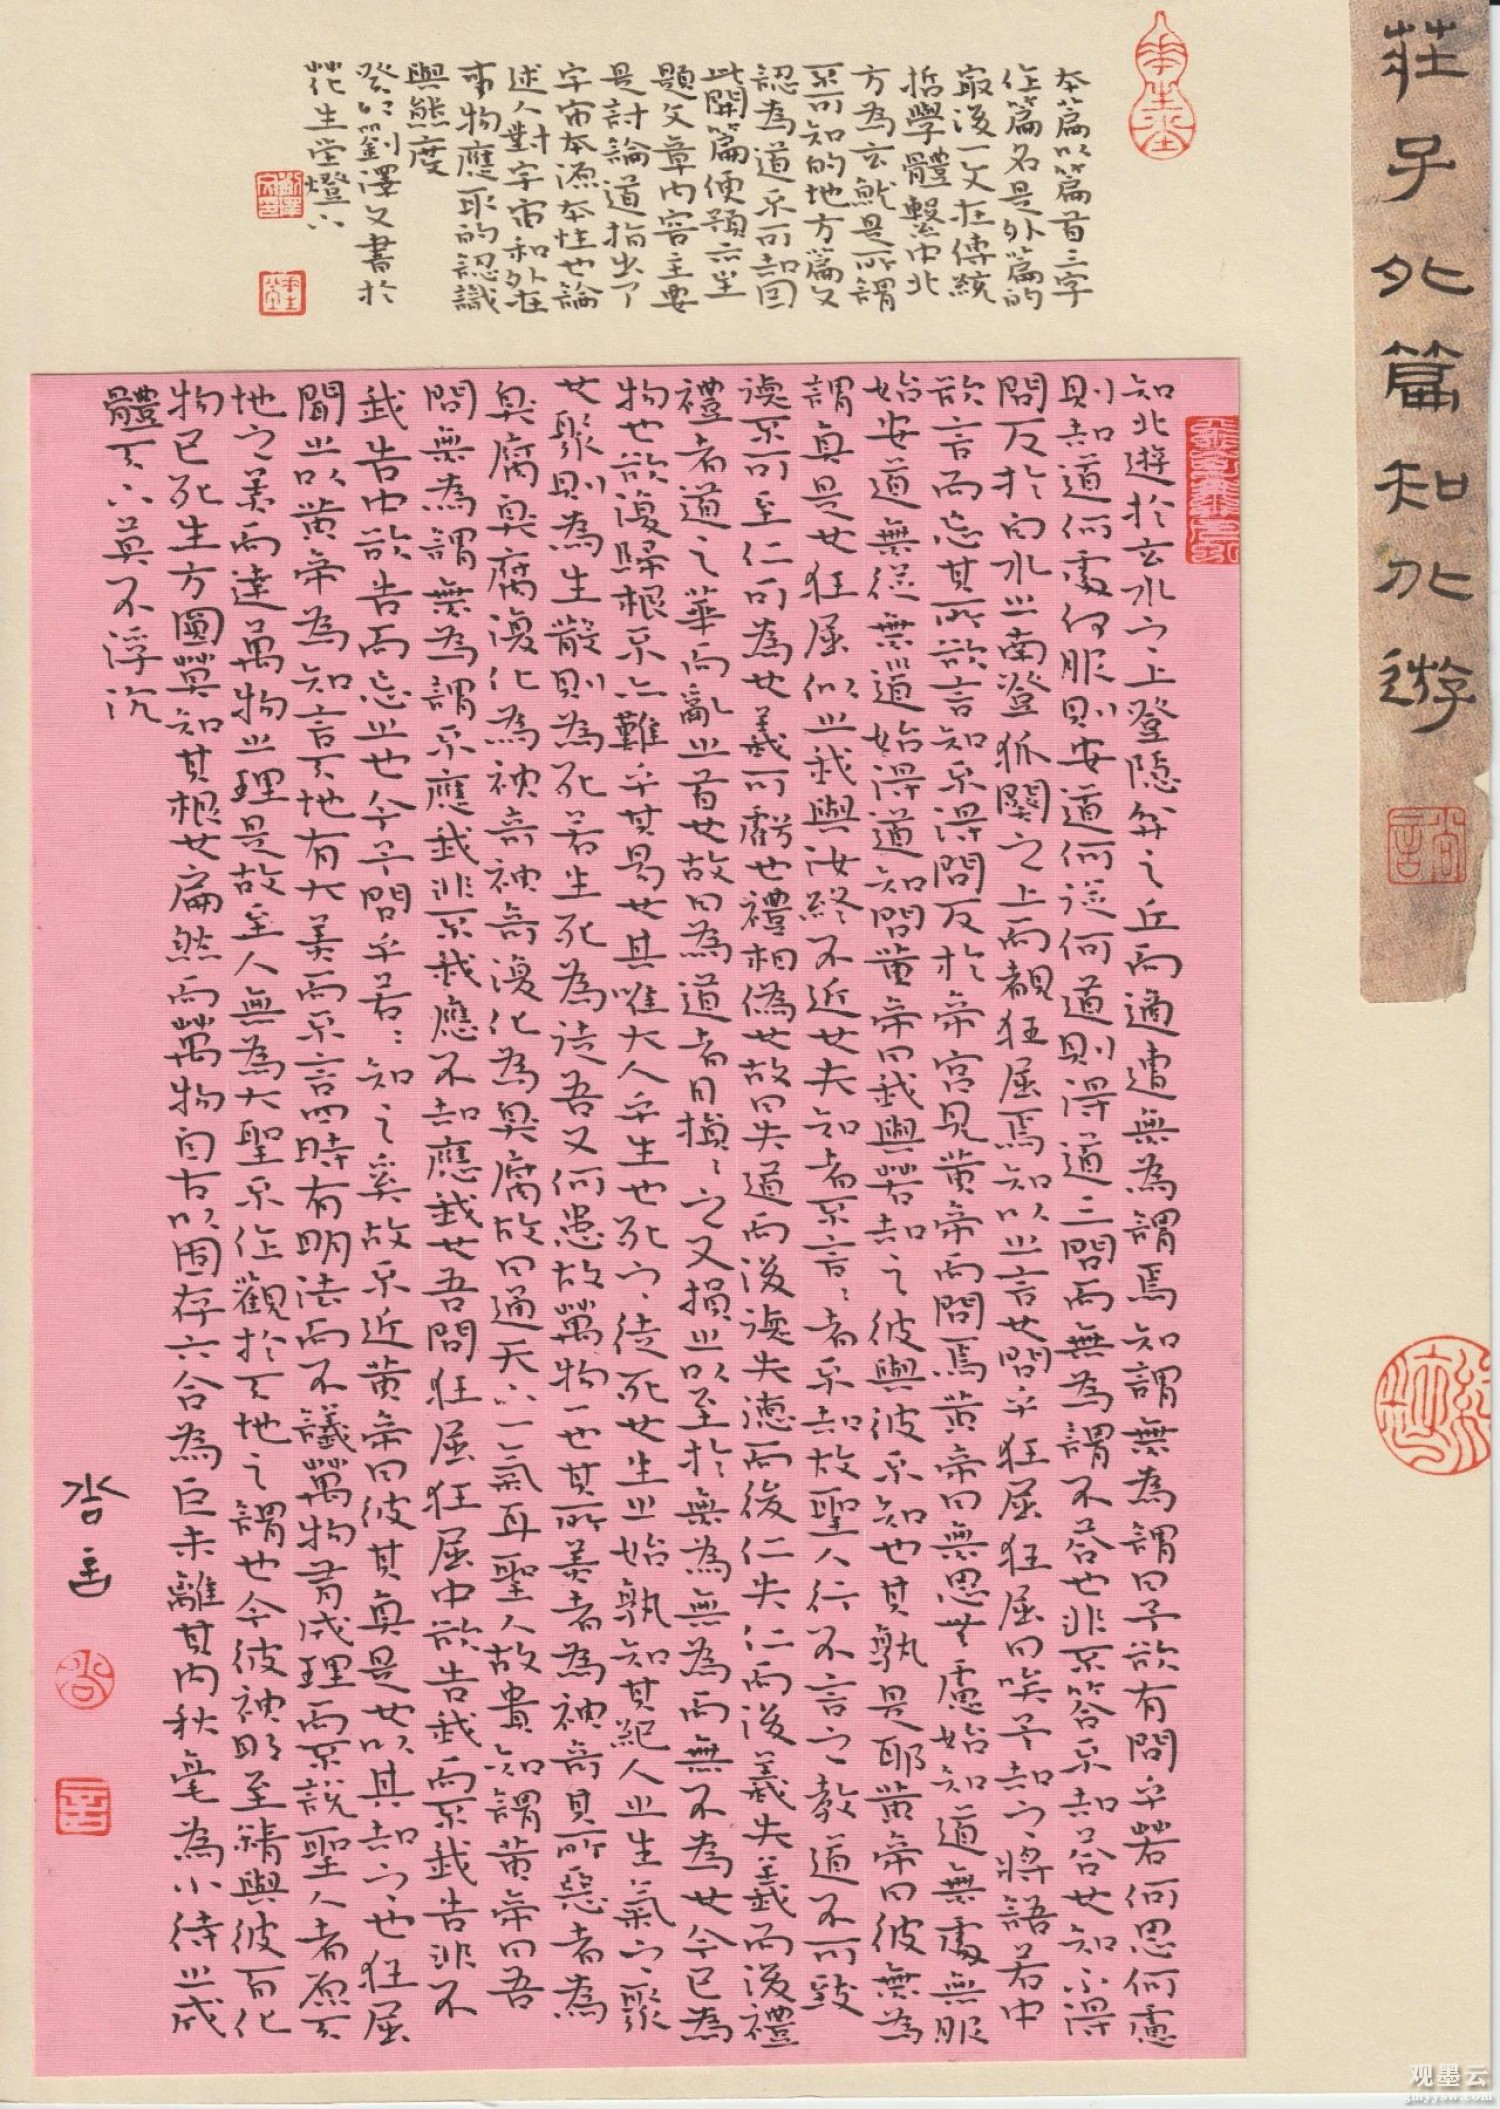 莊子外篇知北遊
本篇以篇首三字
作篇名是外篇的
最後一文在傳統
哲學體繫中北
方為玄就是所謂
不可知的地方篇文
認為道不可知因
此開篇便預示主
題文章內容主要
是討論道指出了
宇宙本源本性也論
述人對宇宙和外在
事物應取的認識
與態度
癸卯劉澤文書於
華生堂燈下
知北遊於玄水之上登隱弅之丘而適遭無為謂焉知謂無為謂曰予欲有問乎若何思何慮
則知道何處何服則安道何從何道則得道三問而無為謂不答也非不答不知答也知不得
問反於白水之南登狐闋之上而覩狂屈焉知以之言也問乎狂屈狂屈曰唉予知之將語若中
欲言而忘其所欲言知不得問反於帝宮見黃帝而問焉黃帝曰無思無慮始知道無處無服
始安道無從無道始得道知問黃帝曰我與若知之彼與彼不知也其孰是耶黃帝曰彼無為
謂真是也狂屈似之我與汝終不近也夫知者不言〻者不知故聖人行不言之教道不可致
德不可至仁可為也義可虧也禮相偽也故曰失道而後德失德而後仁失仁而後義失義而後禮
禮者道之華而亂之首也故曰為道者日損〻之又損之以至於無為無為而無不為也今已為
物也欲復歸根不亦難乎其易也其唯大人乎生也死之徒死也生之始孰知其紀人之生氣之聚
也聚則為生散則為死若生死為徒吾又何患故萬物一也其所美者為神奇其所惡者為
臭腐臭腐復化為神奇神奇復化為臭腐故曰通天下一氣耳聖人故貴知謂黃帝曰吾
問無為謂無為謂不應我非不我應不知應我也吾問狂屈狂屈中欲告我而不我告非不
我告中欲告而忘之也今予問乎若〻知之奚故不近黃帝曰彼其真是也以其知之也狂屈
聞之以黃帝為知言天地有大美而不言四時有明法而不議萬物有成理而不說聖人者原天
地之美而達萬物之理是故至人無為大聖不作觀於天地之謂也今彼神明至精與彼百化
物已死生方圓莫知其根也扁然而萬物自古以固存六合為巨未離其內秋毫為小待之成
體天下莫不浮沉
沓言
观墨云
gmyysw.com